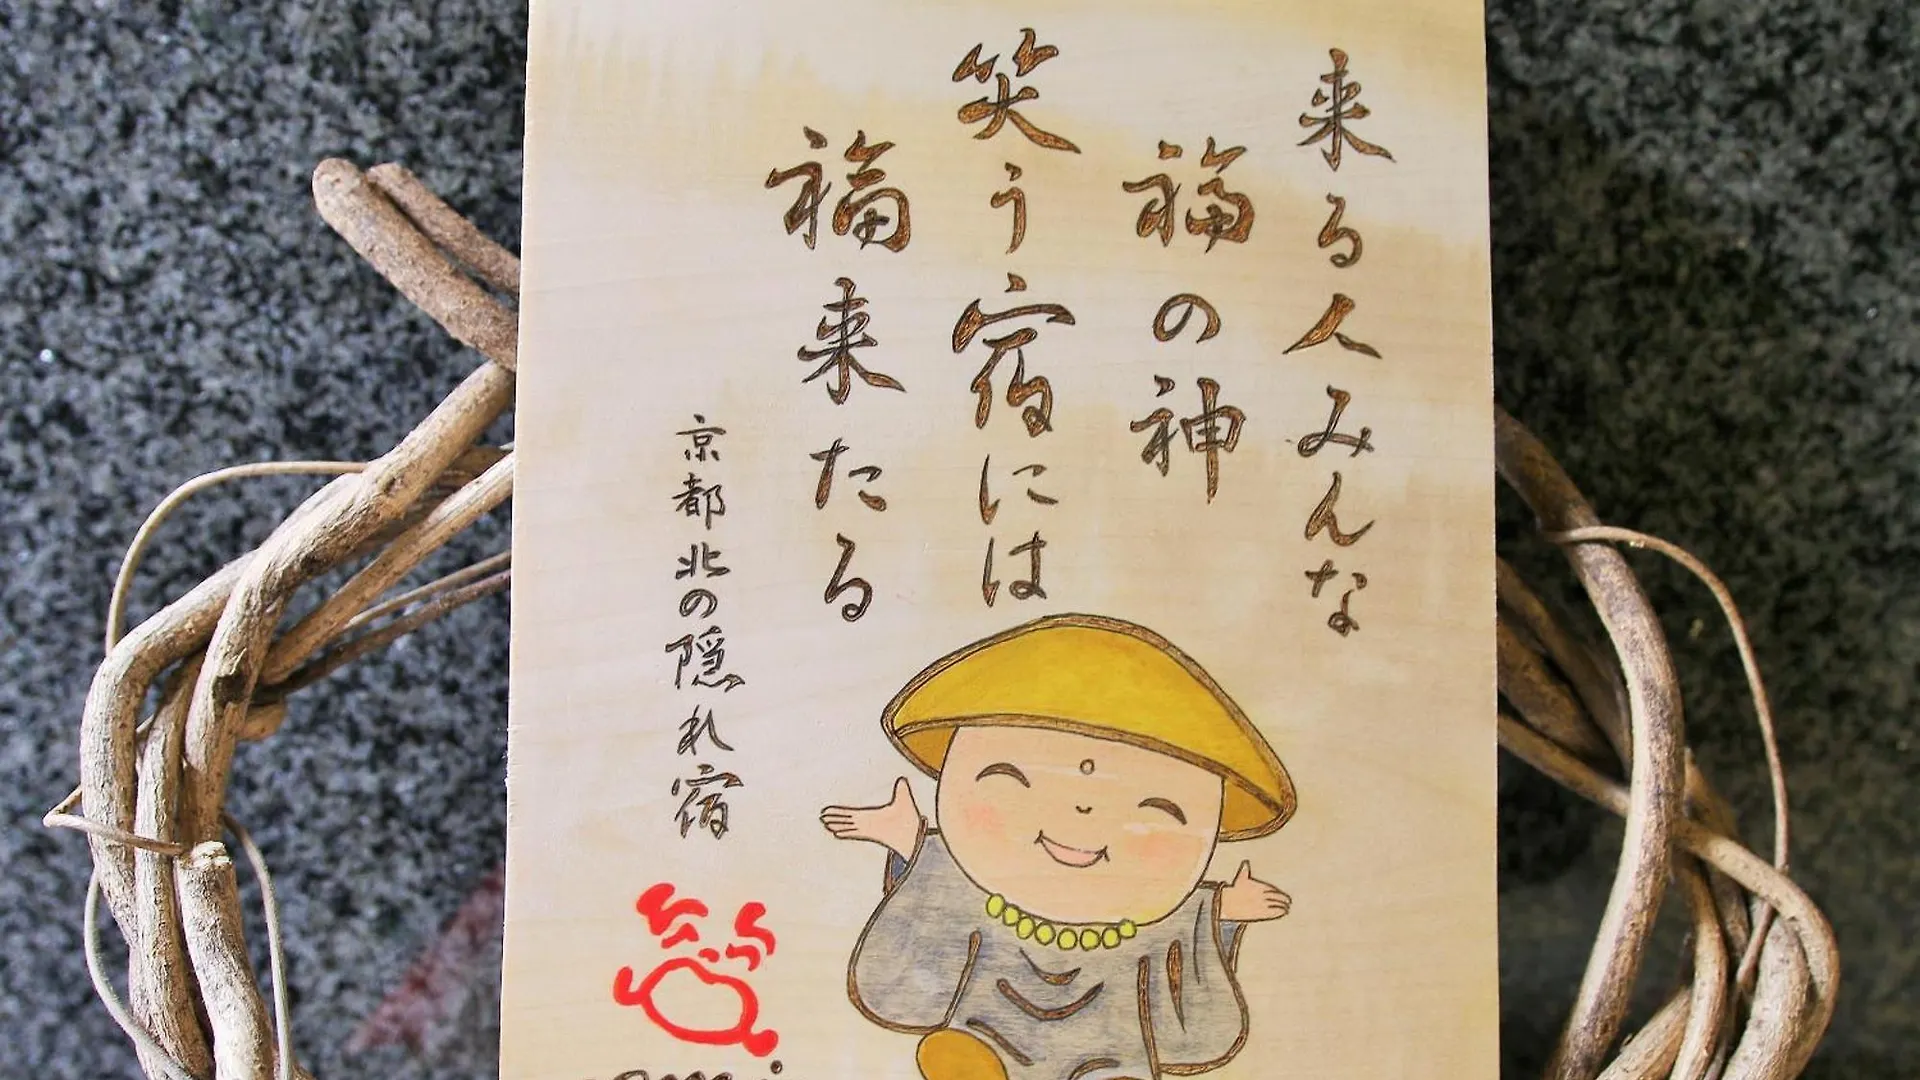 来る人みんな
福の神
笑う宿には
福来たる
京都北の隠れ宿